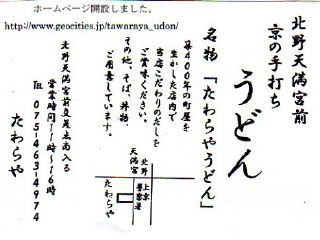 ホームページ開設しました。
http://www.geocities.jp/tawaraya_udon/
北野天満宮前
京の手打ち
うどん
名物「たわらやうどん」
築400年の町屋を
生かした店内で
当店こだわりのだしを
ご賞味ください。
その他、そば、丼物、
ご用意しています。
北野
天満宮
上京
警察署
たわらや
北野天満宮前交差点南入る
営業時間11時～16時
TEL 075-463-4974
たわらや